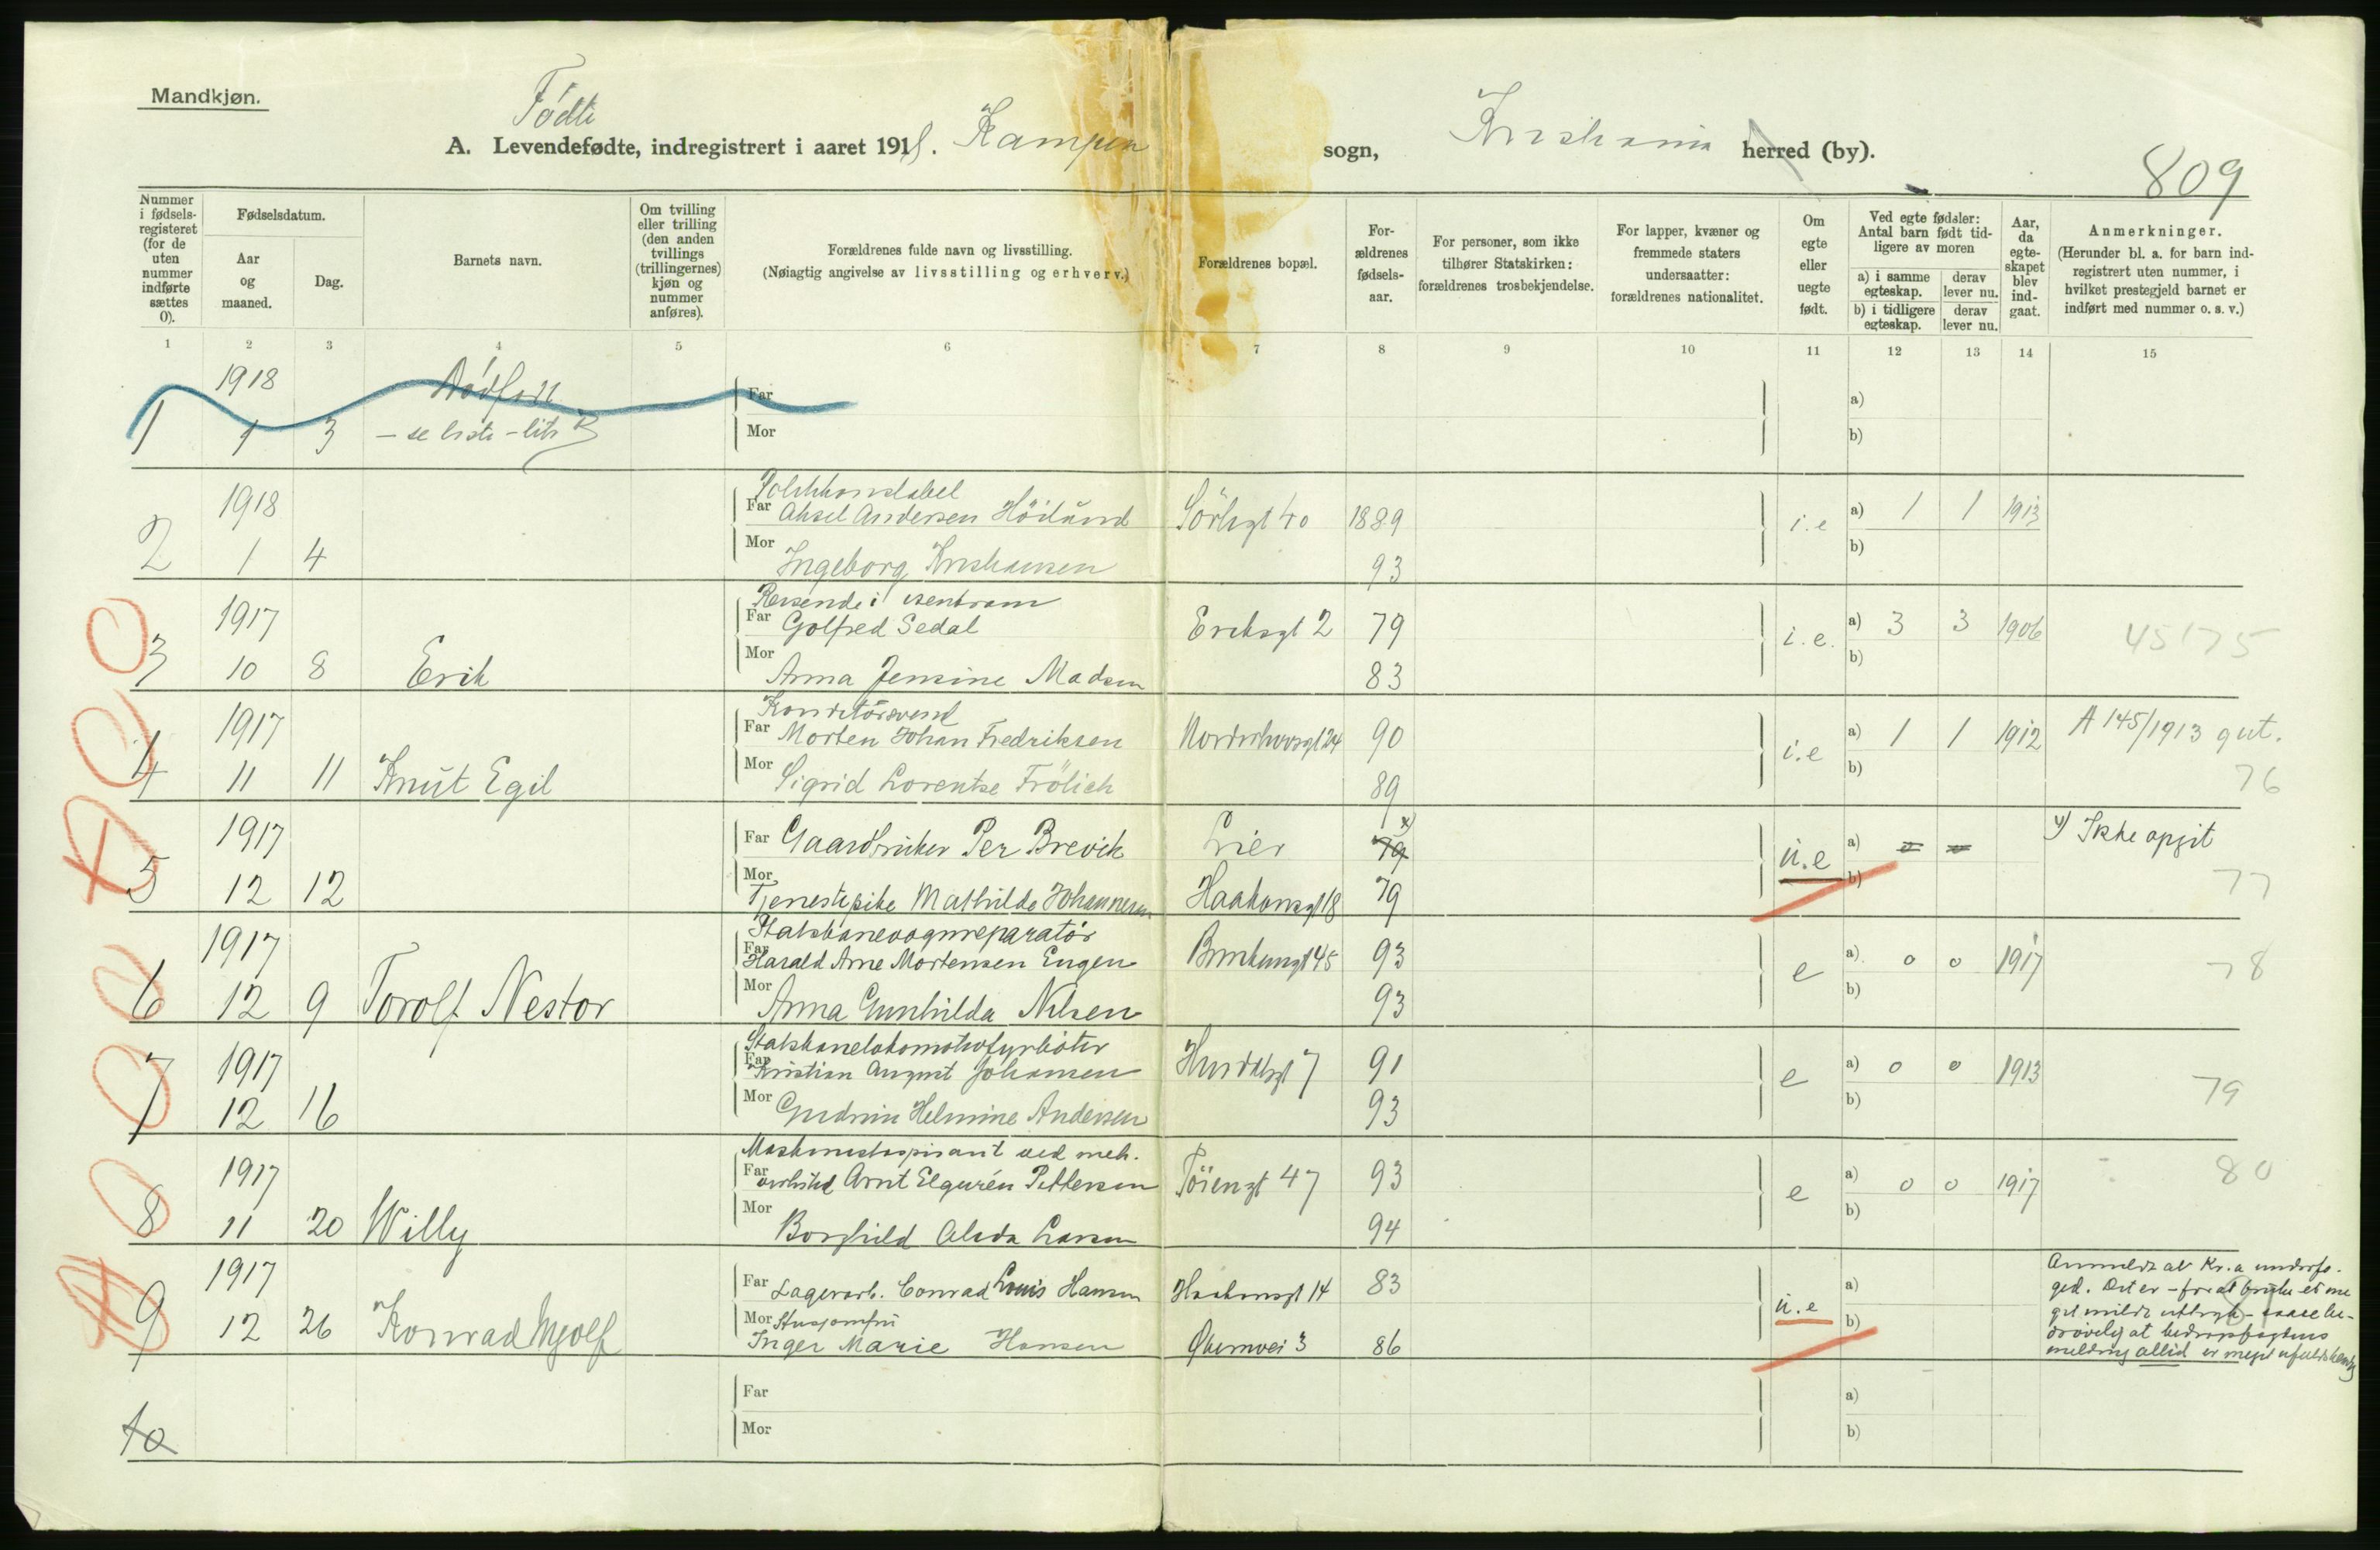 Mandkjøn.
Fødte
A. Levendefødte, indregistrert i aaret 1918. Kampen sogn, Kristiania herred (by).
809
Nummer i fødsels-registeret (for de uten nummer indførte sættes 0).
Fødselsdatum.
Aar og maaned.
Dag.
Barnets navn.
Om tvilling eller trilling (den anden tvillings (trillingernes) kjøn og nummer anføres).
Forældrenes fulde navn og livsstilling.
(Nøiagtig angivelse av livsstilling og erhverv.)
Forældrenes bopæl.
For-ældrenes fødsels-aar.
For personer, som ikke tilhører Statskirken: forældrenes trosbekjendelse.
For lapper, kvæner og fremmede staters undersaatter: forældrenes nationalitet.
Om egte eller uegte født.
Ved egte fødsler: Antal barn født tid-ligere av moren
a) i samme egteskap.
derav lever nu.
b) i tidligere egteskap.
derav lever nu.
Aar, da egte-skapet blev ind-gaat.
Anmerkninger.
(Herunder bl. a. for barn ind-registrert uten nummer, i hvilket prestegjeld barnet er indført med nummer o. s. v.)
1 2 3 4 5 6 7 8 9 10 11 12 13 14 15
1918 Dødfødt Far a)
1 1 3 - se liste - litr B Mor b)
1918 Politikonstabel
Far Aksel Andersen Höilund Sörligt 40 1889 i.e a) 1 1 1913
2 1 4 Mor Ingeborg Kristiansen 93 b)
1917 Reisende i
Far Golfred Sedal Eriksgt 2 79 i.e. a) 3 3 1906 45175
3 10 8 Erik Mor Anna Jensine Madsen 83 b)
1917 Konditörsvend
Far Morten Johan Fredriksen Norderhovsgt 24 90 i.e a) 1 1 1912 A 145/1913 gut.
4 11 11 Knut Egil Mor Sigrid Lorentse Frölich 89 b) 76
1917 Far Gaardbruker Per Brevik Lier 79 x) u.e a) o o x) Ikke opgit
5 12 12 Mor Tjenestepike Mathilde Johannesen Haakonsgt 18 79 b) 77
1917 Statsbanevognreparatör
Far Harald Arne Mortensen Engen 45 93 e a) o o 1917 78
6 12 9 Torolf Nestor Mor Anna Gunhilda Nilsen 93 b)
1917 Statsbanelokomotivfyrböter
Far Kristian August Johansen Hurdalsgt 7 91 e a) o o 1913 79
7 12 16 Mor Gudrun Helmine Andersen 93 b)
1917 Maskinistaspirant ved mek.
Far verksted Arnt Elgurén Pettersen Töiengt 47 93 e a) o o 1917 80
8 11 20 Willy Mor Borghild Alida Larsen 94 b)
1917 Far Lagerarb. Conrad Louis Hansen Haakonsgt 14 83 u.e a)
9 12 26 Konrad Mor Husjomfru
Inger Marie Hansen Økernvei 3 86 b)
Anmeldt av Kr.a underfo-
ged. Det er - for at bruke et me
get mildt uttryk - saare be-
drøvelig at bedragsfogdens
melding altid er meget ufuldstændig
10 Far a)
Mor b)